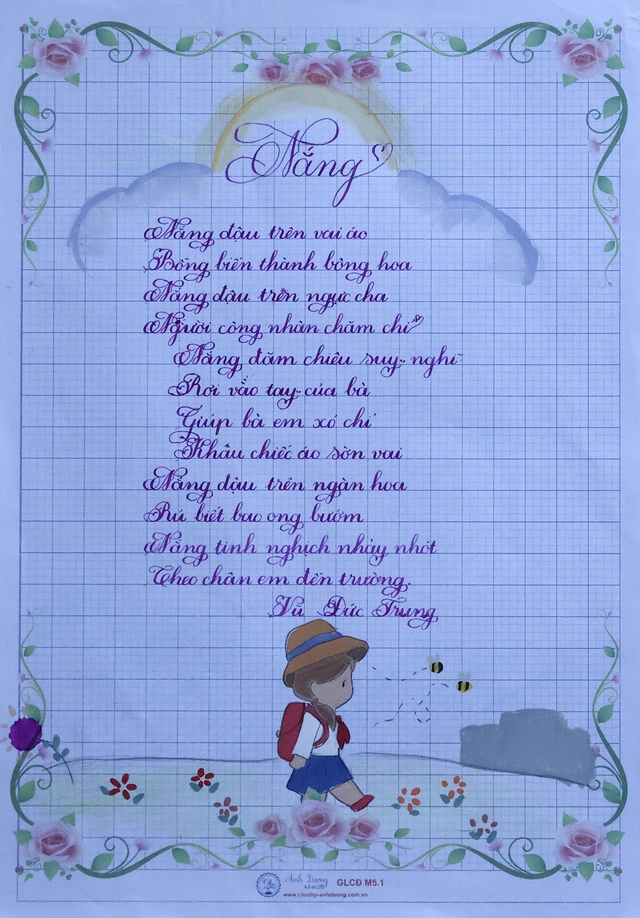 Nắng
Nắng đậu trên vai áo
Bỗng biến thành bông hoa
Nắng đậu trên ngực cha
Người công nhân chăm chỉ
Nắng đăm chiêu suy nghĩ
Rơi vào tay của bà
Giúp bà em xỏ chỉ
Khâu chiếc áo sờn vai
Nắng đậu trên ngàn hoa
Rủ biết bao ong bướm
Nắng tinh nghịch nhảy nhót
Theo chân em đến trường.
Vũ Đức Trung
Ánh Dương GLCĐ M5.1